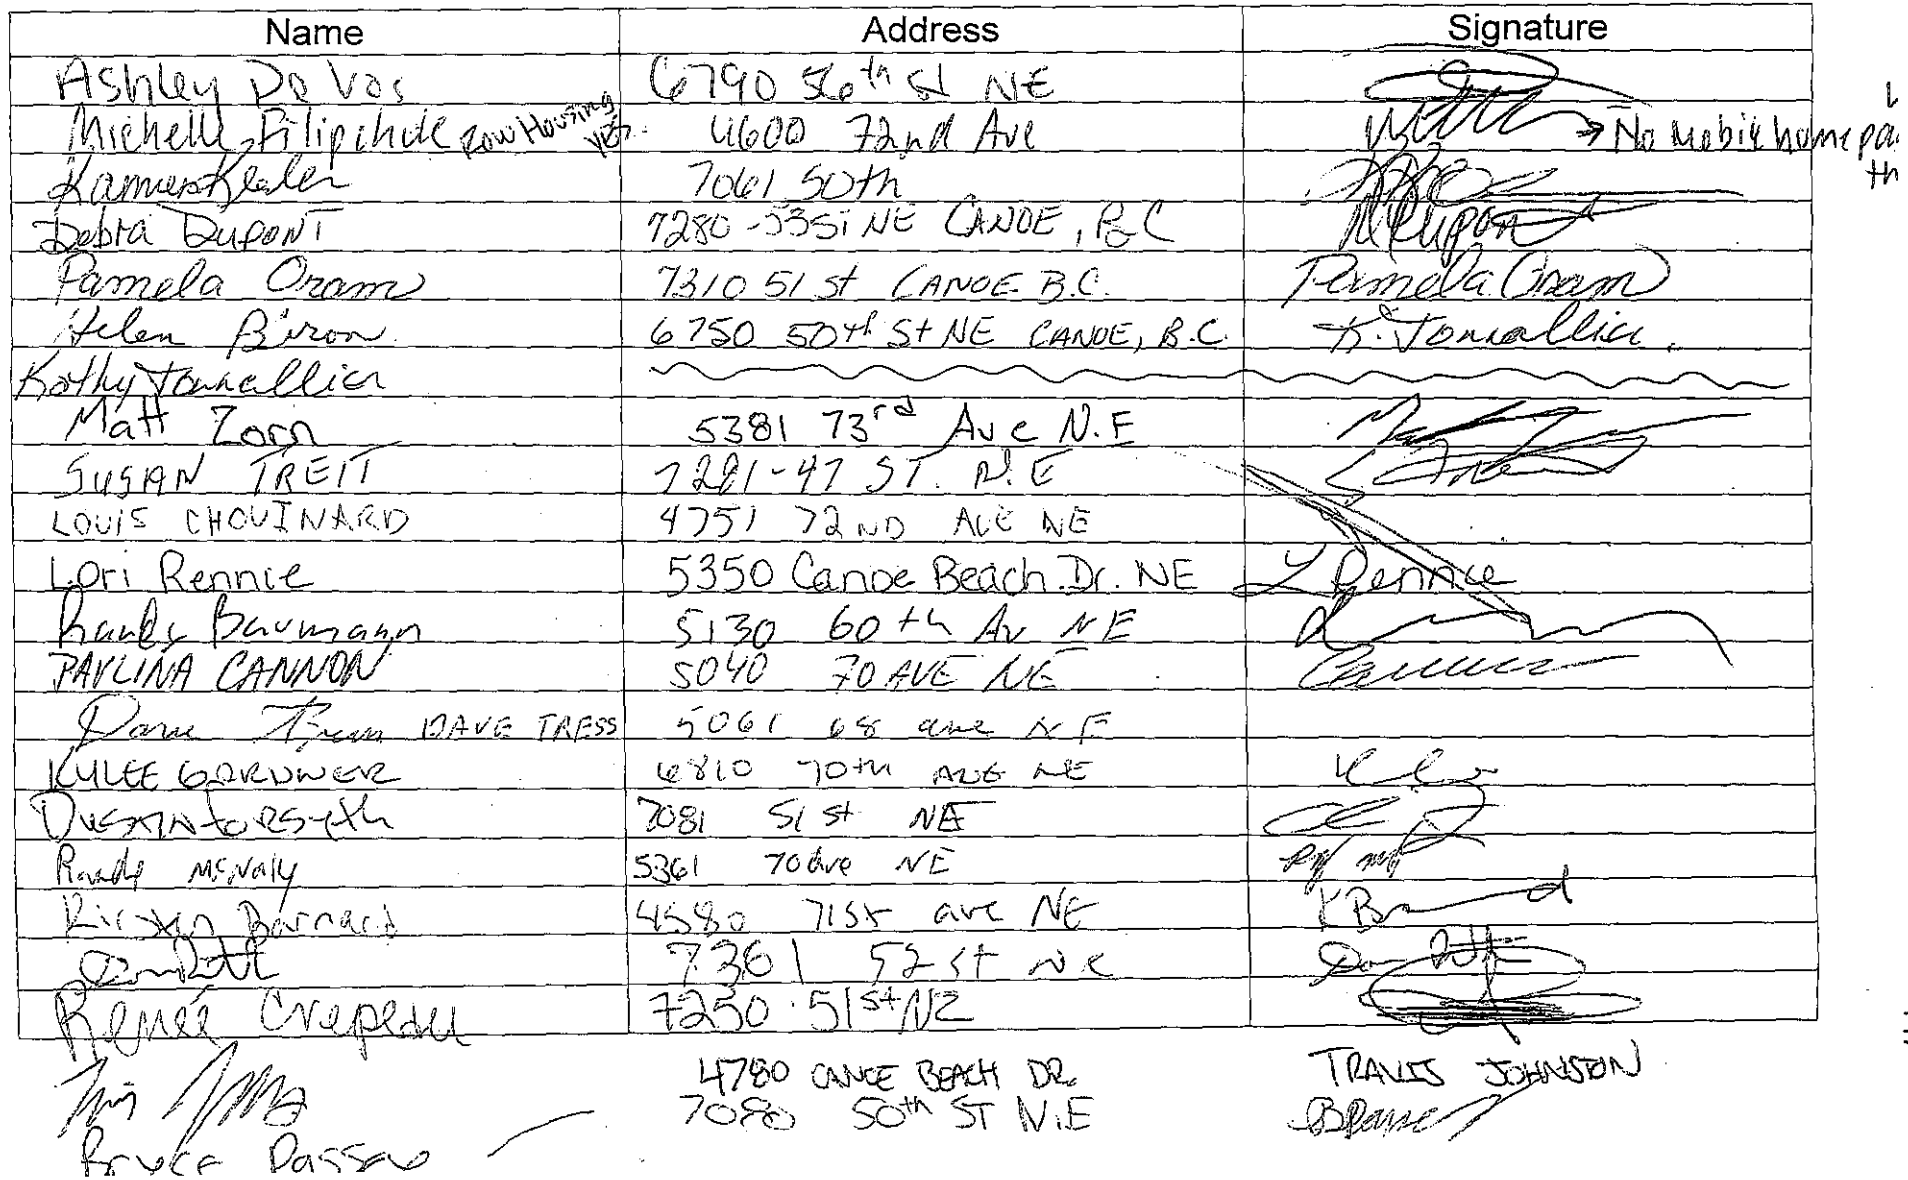 Name Address Signature
Ashley De Vos 6790 56th St NE
Michelle Filipchuk Row Housing yes. 4600 72nd Ave → No mobile home pa
th
7061 50th
Debra Dupont 7280 - 53St NE CANOE, B.C DDupont
Pamela Oram 7310 51 St CANOE B.C. Pamela Oram
Helen Biron 6750 50th St NE CANOE, B.C. K. Tonnallier
Kathy Tonnallier
Matt Zorn 5381 73rd Ave N.E
SUSAN TREIT 7281-47 ST. N.E
LOUIS CHOUINARD 4751 72ND AVE NE
Lori Rennie 5350 Canoe Beach Dr. NE L Rennie
Randy Baumann 5130 60th Av NE
PAVLINA CANNON 5040 70 AVE NE Cannon
DAVE TRESS 5061 68 ave NE
KYLEE GARDNER 6810 70th AVE NE
Dustin Forsyth 7081 51 st NE
Randy McNaly 5361 70 Ave NE
Kirsten Barnard 4580 71st ave NE KB
7361 52 st NE
Renée Crepeau 7250 51st NE
4780 CANOE BEACH DR. TRAVIS JOHNSTON
7080 50th ST N.E
Bruce